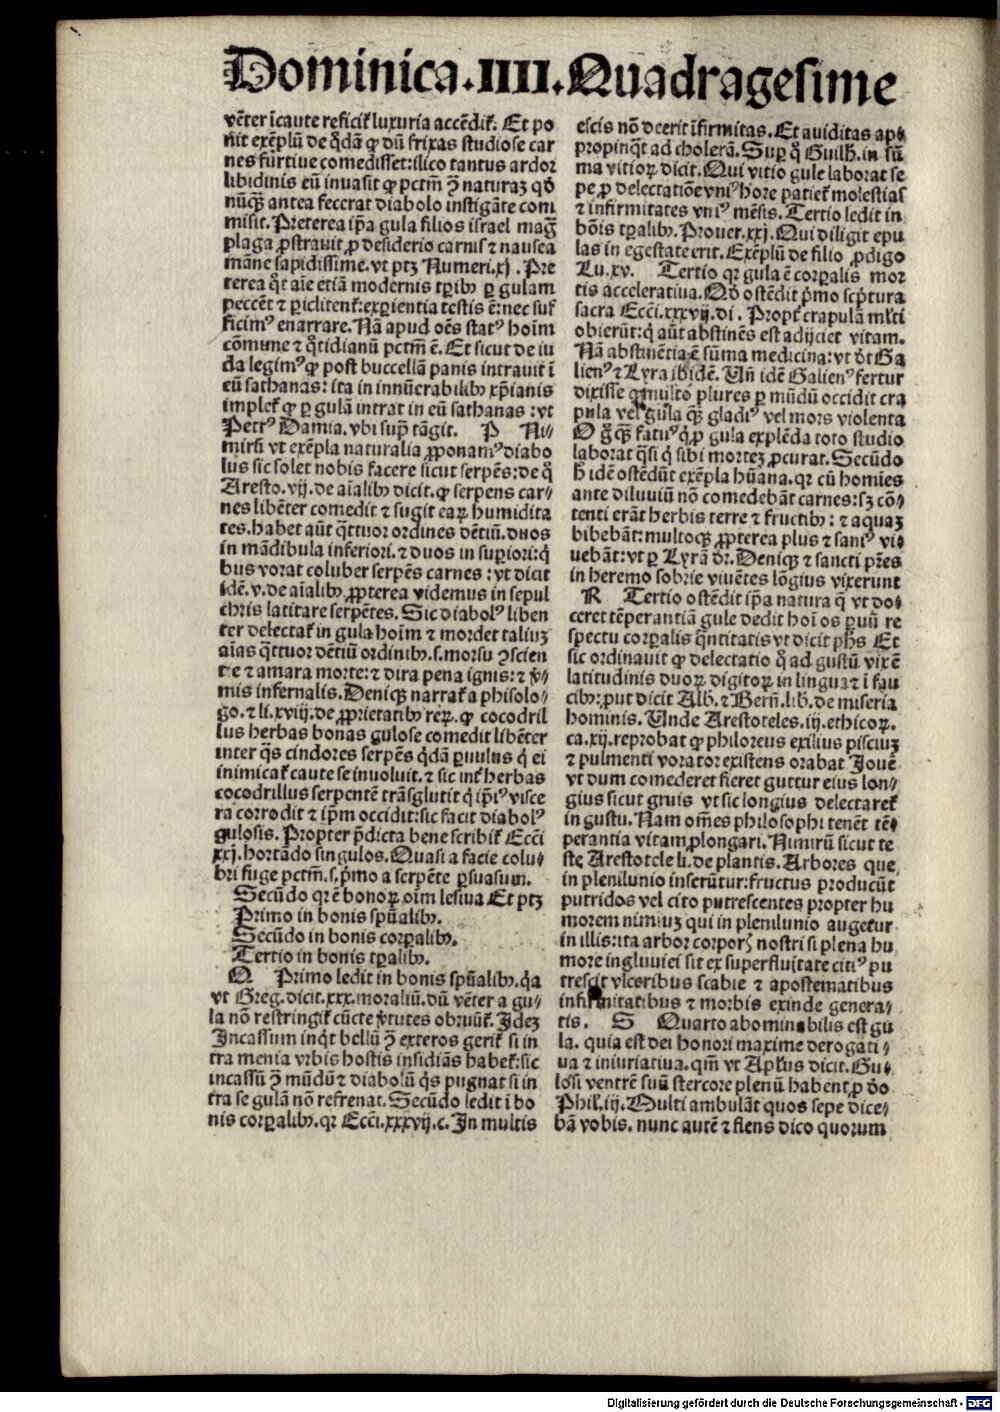 Dominica.IIII.Quadragesime
vēter īcaute reficit̉ luxuria accēdit̉. Et po
nit exēplū de q̄dā ꝙ dū frixas studiose car
nes furtiue comedisset:ilico tantus ardor
libidinis eū inuasit ꝙ pctm̄ ꝯ̄ naturaꝫ qd̄
nūqꝫ antea fecerat diabolo instigāte com
misit. Preterea ip̄a gula filios israel mag̃
plaga ꝓstrauit ꝓ desiderio carnis ⁊ nausea
māne sapidissime. vt ptꝫ Numeri.xj. Pre
terea qͥt aīe etiā modernis tꝑibꝰ ꝑ gulam
peccēt ⁊ ꝑiclitent̉:exꝑientia testis ē:nec suf
ficimꝰ enarrare. Nā apud oēs statꝰ hoīm
cōmune ⁊ q̄tidianū pctm̄ ē. Et sicut de iu
da legimꝰ ꝙ post buccellā panis intrauit ī
eū sathanas: ita in innūerabilibꝰ xp̄ianis
implet̉ ꝙ ꝑ gulā intrat in eū sathanas : vt
Petrꝰ Damia. vbi supͣ tāgit. P Ni/
mirū vt exēpla naturalia ꝓponamꝰ diabo
lus sic solet nobis facere sicut serpēs: de q̊
Aresto.vij.de aīalibꝰ dicit.ꝙ serpens car/
nes libēter comedit ⁊ sugit eaꝝ humidita
tes.habet aūt q̄ttuor ordines dētiū.duos
in mādibula inferiori.⁊ duos in suꝑiori:qͥ
bus vorat coluber serpēs carnes : vt dicit
idē.v.de aīalibꝰ.ꝓpterea videmus in sepul
chris latitare serpētes. Sic diabolꝰ liben
ter delectat̉ in gula hoīm ⁊ mordet taliuꝫ
aīas q̄ttuor dētiū ordinibꝰ.s.morsu ꝯscien
tie ⁊ amara morte:⁊ dira pena ignis:⁊ v̓/
mis infernalis. Deniqꝫ narrat̉ a phisolo/
go.⁊ li.xviij.de ꝓprietatibꝰ reꝝ.ꝙ cocodril
lus herbas bonas gulose comedit libēter
inter q̄s cindores serpēs q̄dā ꝑuulus qͥ ei
inimicat̉ caute se inuoluit.⁊ sic int̓ herbas
cocodrillus serpentē trāsglutit qͥ ip̄iꝰ visce
ra corrodit ⁊ ip̄m occidit:sic facit diabolꝰ
gulosis. Propter p̄dicta bene scribit̉ Ecc̄i
xxj.hortādo singulos. Quasi a facie colu/
bri fuge pctm̄.s.pͥmo a serpēte ꝑsuasum.
Secūdo qr ē bonoꝝ oīm lesiua Et ptꝫ
Primo in bonis spūalibꝰ.
Secūdo in bonis corꝑalibꝰ.
Tertio in bonis tꝑalibꝰ.
Q Primo ledit in bonis spūalibꝰ.qͥa
vt Greg.dicit.xxx.moraliū.dū vēter a gu/
la nō restringit̉ cūcte v̓tutes obruūt̉. Ideꝫ
Incassum inqͥt bellū ꝯ̄ exteros gerit̉ si in
tra menia vrbis hostis insidiās habet̉:sic
incassū ꝯ̄ mūdū ⁊ diabolū q̄s pugnat si in
tra se gulā nō refrenat. Secūdo ledit ī bo
nis corꝑalibꝰ.qr Ecc̄i.xxxvij.c. In multis
escis nō deerit īfirmitas. Et auiditas ap/
propinq̄t ad cholerā. Suꝑ qͦ Guilh.in sū
ma vitioꝝ dicit. Qui vitio gule laborat se
pe ꝓ delectatiōe vniꝰ hore patiet̉ molestias
⁊ infirmitates vniꝰ mēsis. Tertio ledit in
bōis tꝑalibꝰ. Prouer.xxj. Qui diligit epu
las in egestate erit. Exēplū de filio ꝓdigo
Lu.xv. Tertio qr gula ē corꝑalis mor
tis acceleratiua. Qd̓ ostēdit pͥmo scͥptura
sacra Ecc̄i.xxxvij.di. Propt̓ crapulā ml̓ti
obierūt:qͥ aūt abstinēs est adijciet vitam.
Nā abstinētia ē sūma medicina:vt dt̓ Ga
lienꝰ ⁊ Lyra ibidē. Vn̄ idē Galienꝰ fertur
dixisse ꝙ multo plures ꝑ mūdū occidit cra
pula vel gula qͣꝫ gladiꝰ vel mors violenta
O g̊ qͣꝫ fatuꝰ qͥ ꝓ gula explēda toto studio
laborat q̄si qͥ sibi morteꝫ ꝓcurat. Secūdo
h̓ idē ostēdūt exēpla hūana.qr cū homies
ante diluuiū nō comedebāt carnes:sꝫ cō/
tenti erāt herbis terre ⁊ fructibꝰ: ⁊ aquaꝫ
bibebāt:multoqꝫ ꝓpterea plus ⁊ saniꝰ vi/
uebāt:vt ꝑ Lyrā dr̄. Deniqꝫ ⁊ sancti pr̄es
in heremo sobrie viuētes lōgius vixerunt
R Tertio ostēdit ip̄a natura q̄ vt do/
ceret tēperantiā gule dedit hoī os ꝑuū re
spectu corꝑalis q̄ntitatis vt dicit ph̄s Et
sic ordinauit ꝙ delectatio q̄ ad gustū vix ē
latitudinis duoꝝ digitoꝝ in lingua ⁊ ī fau
cibꝰ:put dicit Alb.⁊ Bern̄.lib.de miseria
hominis. Unde Arestoteles.iij.ethicoꝝ.
ca.xij.reprobat ꝙ philoreus exilius pisciuꝫ
⁊ pulmenti vorator existens orabat Iouē
vt dum comederet fieret guttur eius lon/
gius sicut gruis vt sic longius delectaret̉
in gustu. Nam om̄es philosophi tenēt tē/
perantia vitam ꝓlongari. Nimirū sicut te
ste Arestotele li.de plantis. Arbores que
in plenilunio inserūtur:fructus producūt
putridos vel cito putrescentes propter hu
morem nimiuꝫ qui in plenilunio augetur
in illis:ita arbor corporꝭ nostri si plena hu
more ingluuiei sit ex superfluitate citiꝰ pu
trescit vlceribus scabie ⁊ apostematibus
infirmitatibus ⁊ morbis exinde genera/
tis. S Quarto abominabilis est gu
la. quia est dei honori maxime derogati/
ua ⁊ iniuriatiua.qm̄ vt Apl̓us dicit. Gu/
losi ventrē suū stercore plenū habent ꝓ do
Phil̓.iij. Multi ambulāt quos sepe dice/
bā vobis. nunc autē ⁊ flens dico quorum
Digitalisierung gefördert durch die Deutsche Forschungsgemeinschaft - DFG